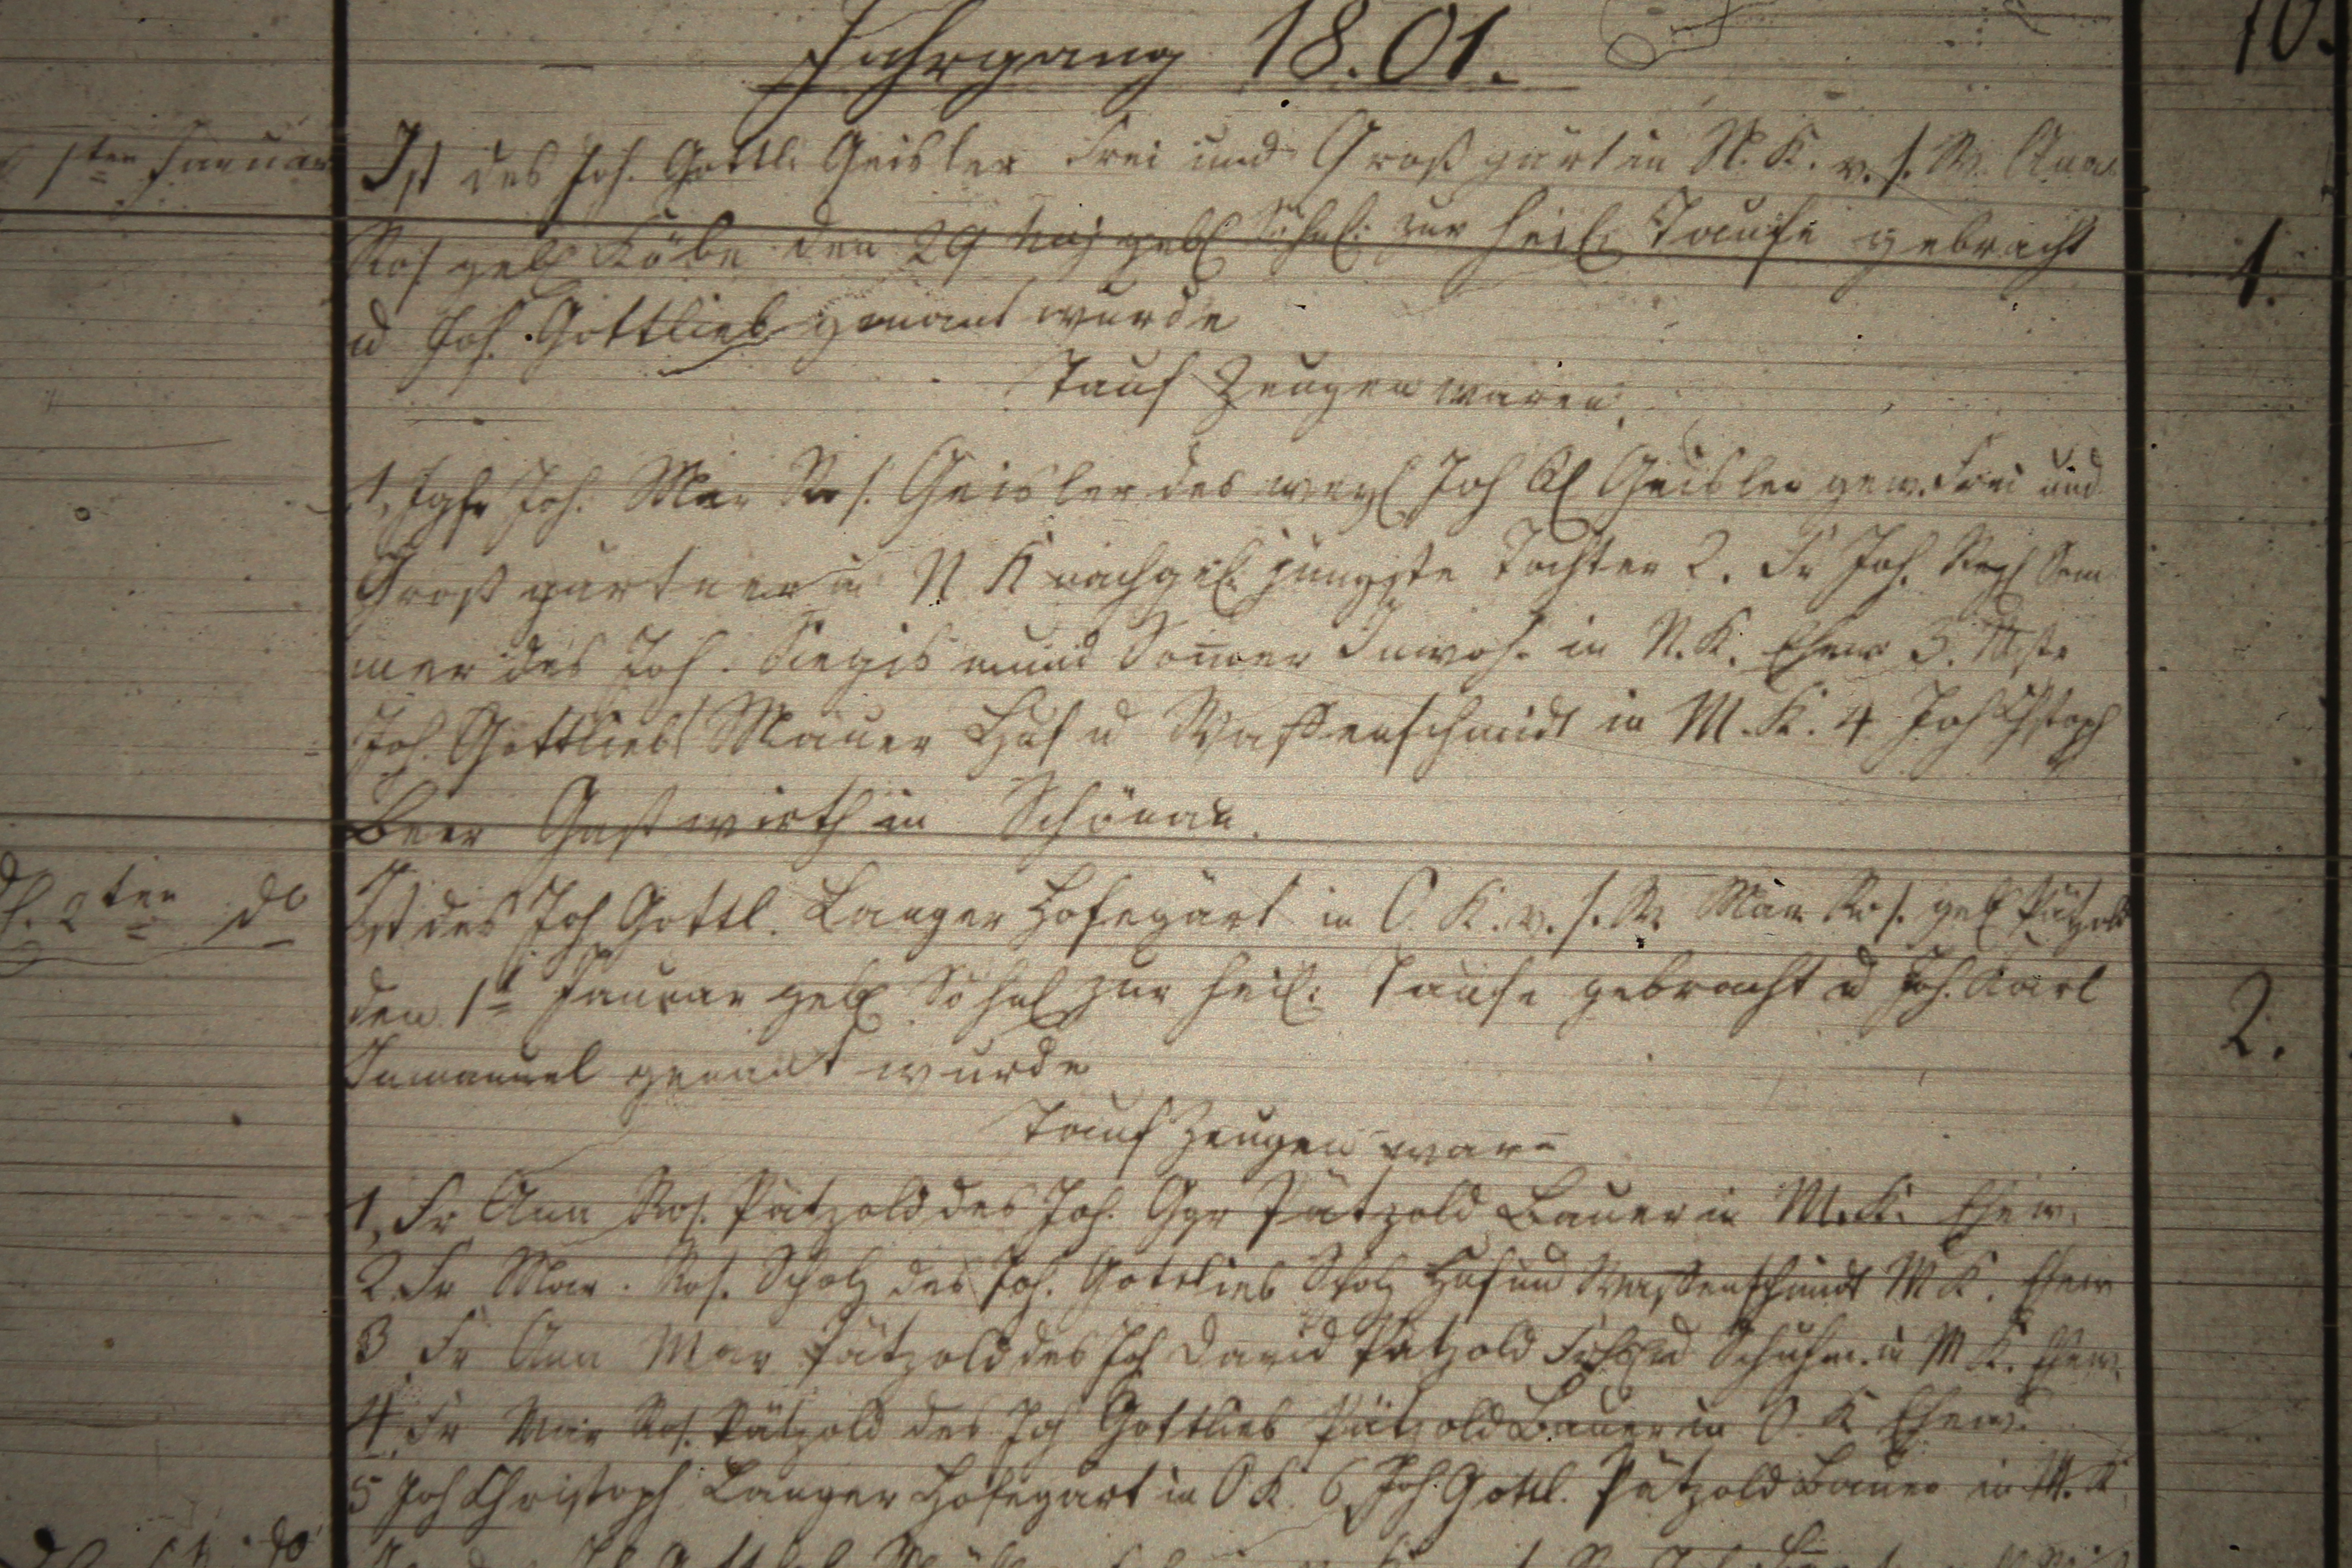 Jahrgang 18.01.
10.
1ten Januar
Ist des Joh. Gottli Geisler Frei und Großgärt in N. K. v. s. W. Anna
Ros geb Köbe den 29 geb Söhnl. zur heil. Taufe gebracht
1.
u Joh. Gottlieb genant wurde
Tauf Zeugen waren
1, Igfr Joh. Mar Ros. Geisler des weyl Joh Geisler gew. Frei und
Großgärtner in N K nachgel. jüngste Tochter 2. Fr Joh. Som
mer des Joh. Siegismund Som̄er Inwoh. in N. K. Ehew 3. Mstr
Joh. Gottlieb Mauer Huf u Waffenschmidt in M. K. 4 Joh Chstoph
Beer Gastwirth in Schönau.
d. 2ten do
Ist des Joh Gottl. Langer Hofegärt in O. K. v. s. W. Mar Ros. geb Pätzold
den 1t Januar geb Söhnl zur heil. Taufe gebracht u Joh. Karl
2.
Immanuel genant wurde
Tauf Zeugen ware
1, Fr Ann Ros. Pätzold des Joh. Ggr Pätzold Bauer in M. K. Ehew.
2 Fr Mar. Ros. Scholz des Joh. Gottlieb Scholz Huf und Waffenschmidt M K. Ehew
3 Fr Ann Mar Pätzold des Joh David Pätzold u Schuhm. in M K. Ehew.
4, Fr Mar Ros. Pätzold des Joh Gottlieb Pätzold Bauer in O. K Ehew.
5 Joh Christoph Langer Hofegärt in O K. 6, Joh. Gottl. Pätzold Bauer in M. K